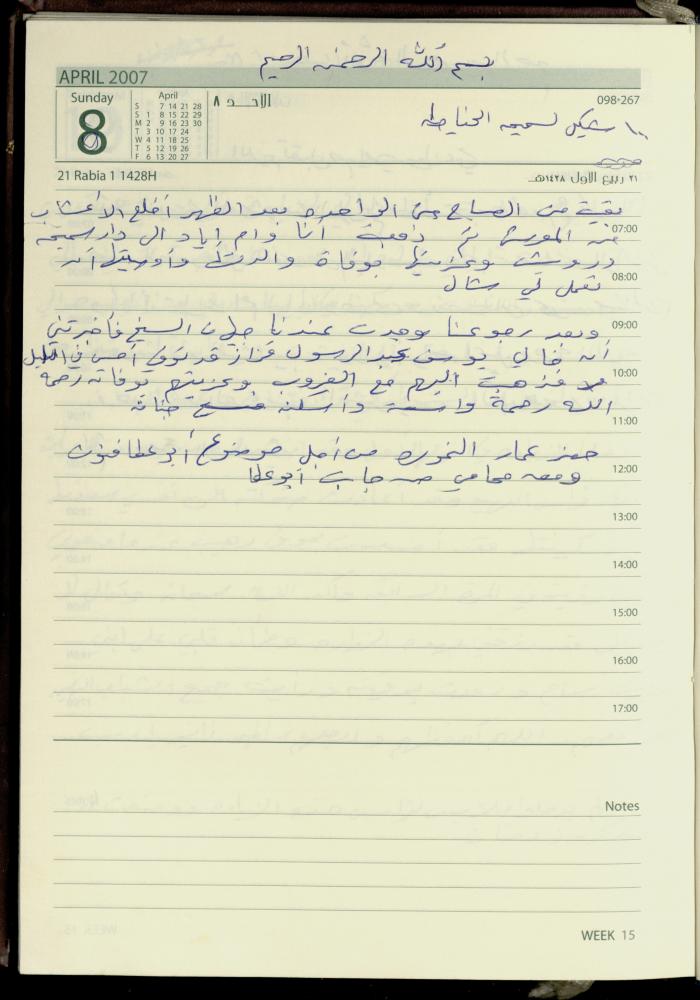 بسم الله الرحمن الرحيم
APRIL 2007
Sunday
8
April
S 7 14 21 28
S 1 8 15 22 29
M 2 9 16 23 30
T 3 10 17 24
W 4 11 18 25
T 5 12 19 26
F 6 13 20 27
الأحد ٨
098-267
١٠٠ شيكل لسميحه الخياطه
21 Rabia 1 1428H
٢١ ربيع الاول ١٤٢٨هـ
بقية من الصباح حتى الواحدة بعد الظهر أقلع الأعشاب
07:00
من ثم ذهبت أنا وام اياد الى دار سميحه
درويش وعزيتها بوفاة والدتها وأوصيتها أن
08:00
تعمل لي شال
09:00
وبعد رجوعنا وجدت عندنا الشيخ فأخبرتني
أن خالي يوسف عبد الرسول قزاز قد توفي أمس في الليل
10:00
فذهبت اليهم مع الغروب وعزيتهم بوفاته رحمه
الله رحمة واسعة وأسكنه فسيح جنانه
11:00
حضر عمار من أجل موضوع أبو عطا
12:00
ومعه محامي من جانب أبو عطا
13:00
14:00
15:00
16:00
17:00
Notes
WEEK 15